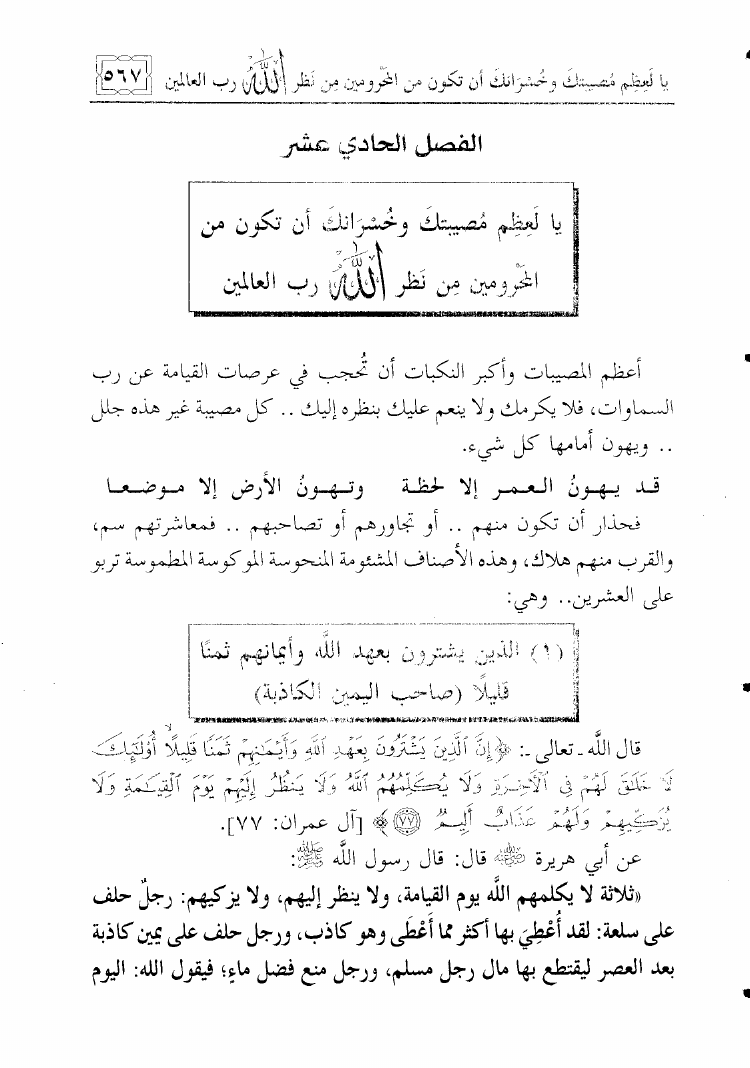 يا لَعِظِم مُصيبتكَ وخُسْرَانكَ أن تكون من المَحْرومين مِن نَظر اللَّه رب العالمين ٥٦٧
الفصل الحادي عشر
يا لَعِظِم مُصيبتكَ وخُسْرَانكَ أن تكون من
المَحْرومين مِن نَظر اللَّه رب العالمين
أعظم المصيبات وأكبر النكبات أن تُحجب في عرصات القيامة عن رب
السماوات، فلا يكرمك ولا ينعم عليك بنظره إليك .. كل مصيبة غير هذه جلل
.. ويهون أمامها كل شيء.
قد يـهـونُ الـعـمـر إلا لحظة وتـهـونُ الأرض إلا مـوضـعـا
فحذار أن تكون منهم .. أو تجاورهم أو تصاحبهم .. فمعاشرتهم سم،
والقرب منهم هلاك، وهذه الأصناف المشئومة المنحوسة الموكوسة المطموسة تربو
على العشرين.. وهي:
(١) الذين يشترون بعهد اللَّه وأيمانهم ثمنًا
قليلًا (صاحب اليمين الكاذبة)
قال اللَّه ـ تعالى ـ: ﴿إِنَّ ٱلَّذِينَ يَشْتَرُونَ بِعَهْدِ ٱللَّهِ وَأَيْمَٰنِهِمْ ثَمَنًا قَلِيلًا أُو۟لَٰٓئِكَ
لَا خَلَٰقَ لَهُمْ فِى ٱلْأَخِرَةِ وَلَا يُكَلِّمُهُمُ ٱللَّهُ وَلَا يَنظُرُ إِلَيْهِمْ يَوْمَ ٱلْقِيَٰمَةِ وَلَا
يُزَكِّيهِمْ وَلَهُمْ عَذَابٌ أَلِيمٌ ﴿٧٧﴾﴾ [آل عمران: ٧٧].
عن أبي هريرة رضي الله عنه قال: قال رسول اللَّه ﷺ:
«ثلاثة لا يكلمهم اللَّه يوم القيامة، ولا ينظر إليهم، ولا يزكيهم: رجلٌ حلف
على سلعة: لقد أُعْطِيَ بها أكثر مما أَعْطَى وهو كاذب، ورجل حلف على يمين كاذبة
بعد العصر ليقتطع بها مال رجل مسلم، ورجل منع فضل ماءٍ؛ فيقول الله: اليوم